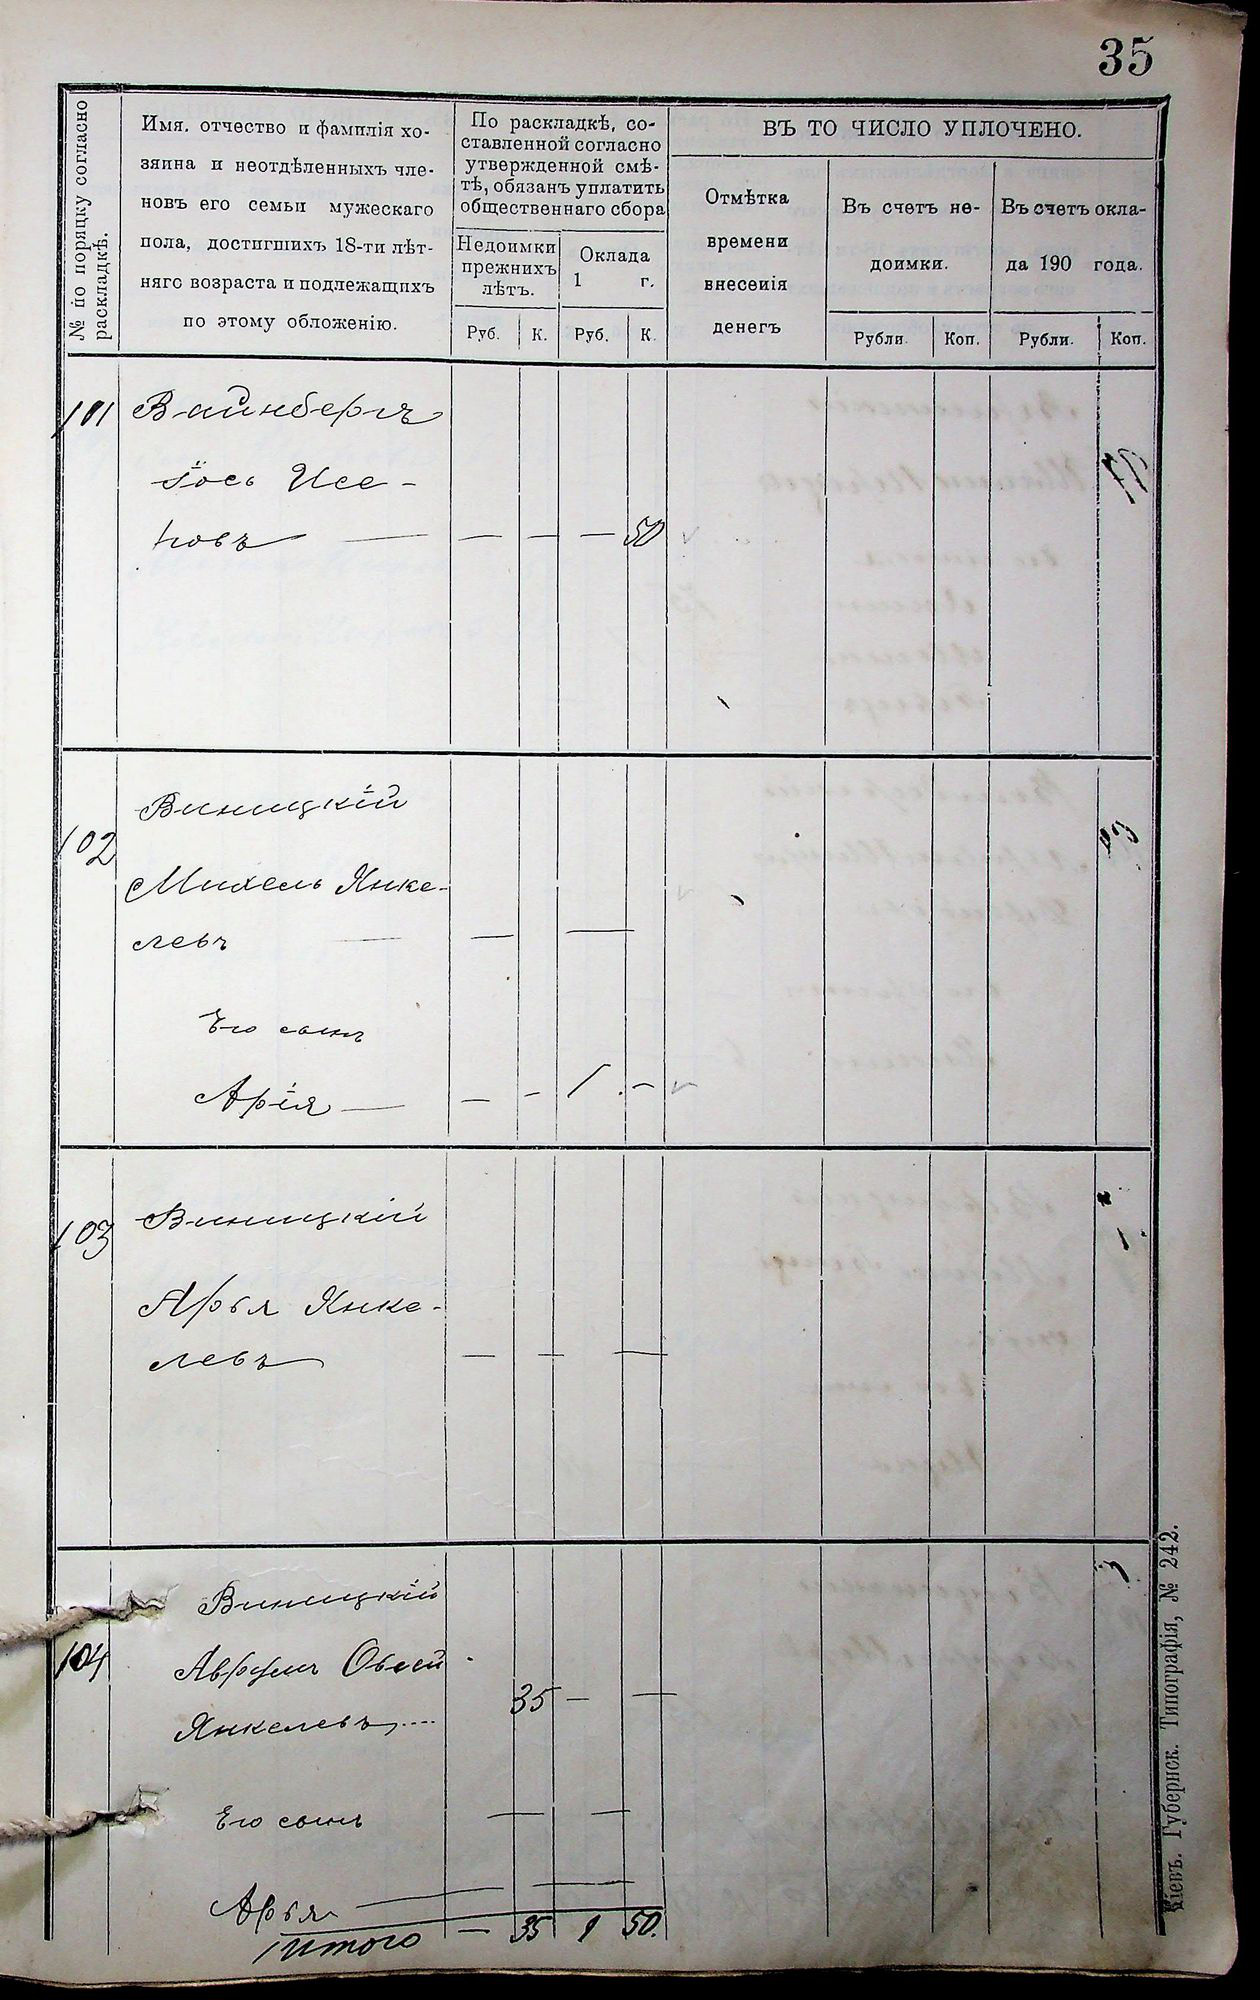 35
№ по порядку согласно
раскладкѣ.
Имя, отчество и фамилія хо-
зяина и неотдѣленныхъ чле-
новъ его семьи мужескаго
пола, достигшихъ 18-ти лѣт-
няго возраста и подлежащихъ
по этому обложенію.
По раскладкѣ, со-
ставленной согласно
утвержденной смѣ-
тѣ, обязанъ уплатить
общественнаго сбора
Недоимки
прежнихъ
лѣтъ.
Оклада
1 г.
Руб. К. Руб. К.
ВЪ ТО ЧИСЛО УПЛОЧЕНО.
Отмѣтка
времени
внесенія
денегъ
Въ счетъ не-
доимки.
Въ счетъ окла-
да 190 года.
Рубли. Коп. Рубли. Коп.
101 Вайнбергъ
Іось Исе-
ковъ — — — — 50
Виницкій
102
Михель Янке-
левъ — — —
Его сынъ
Арія — — - 1 . -
Виницкій
103
Арья Янке-
левъ — — —
Виницкій
104 Аврумъ Овсей
35 — —
Янкелевъ
Его сынъ — —
Арья — —
Итого — 35 1 50.
Кіевъ. Губернск. Типографія, № 242.